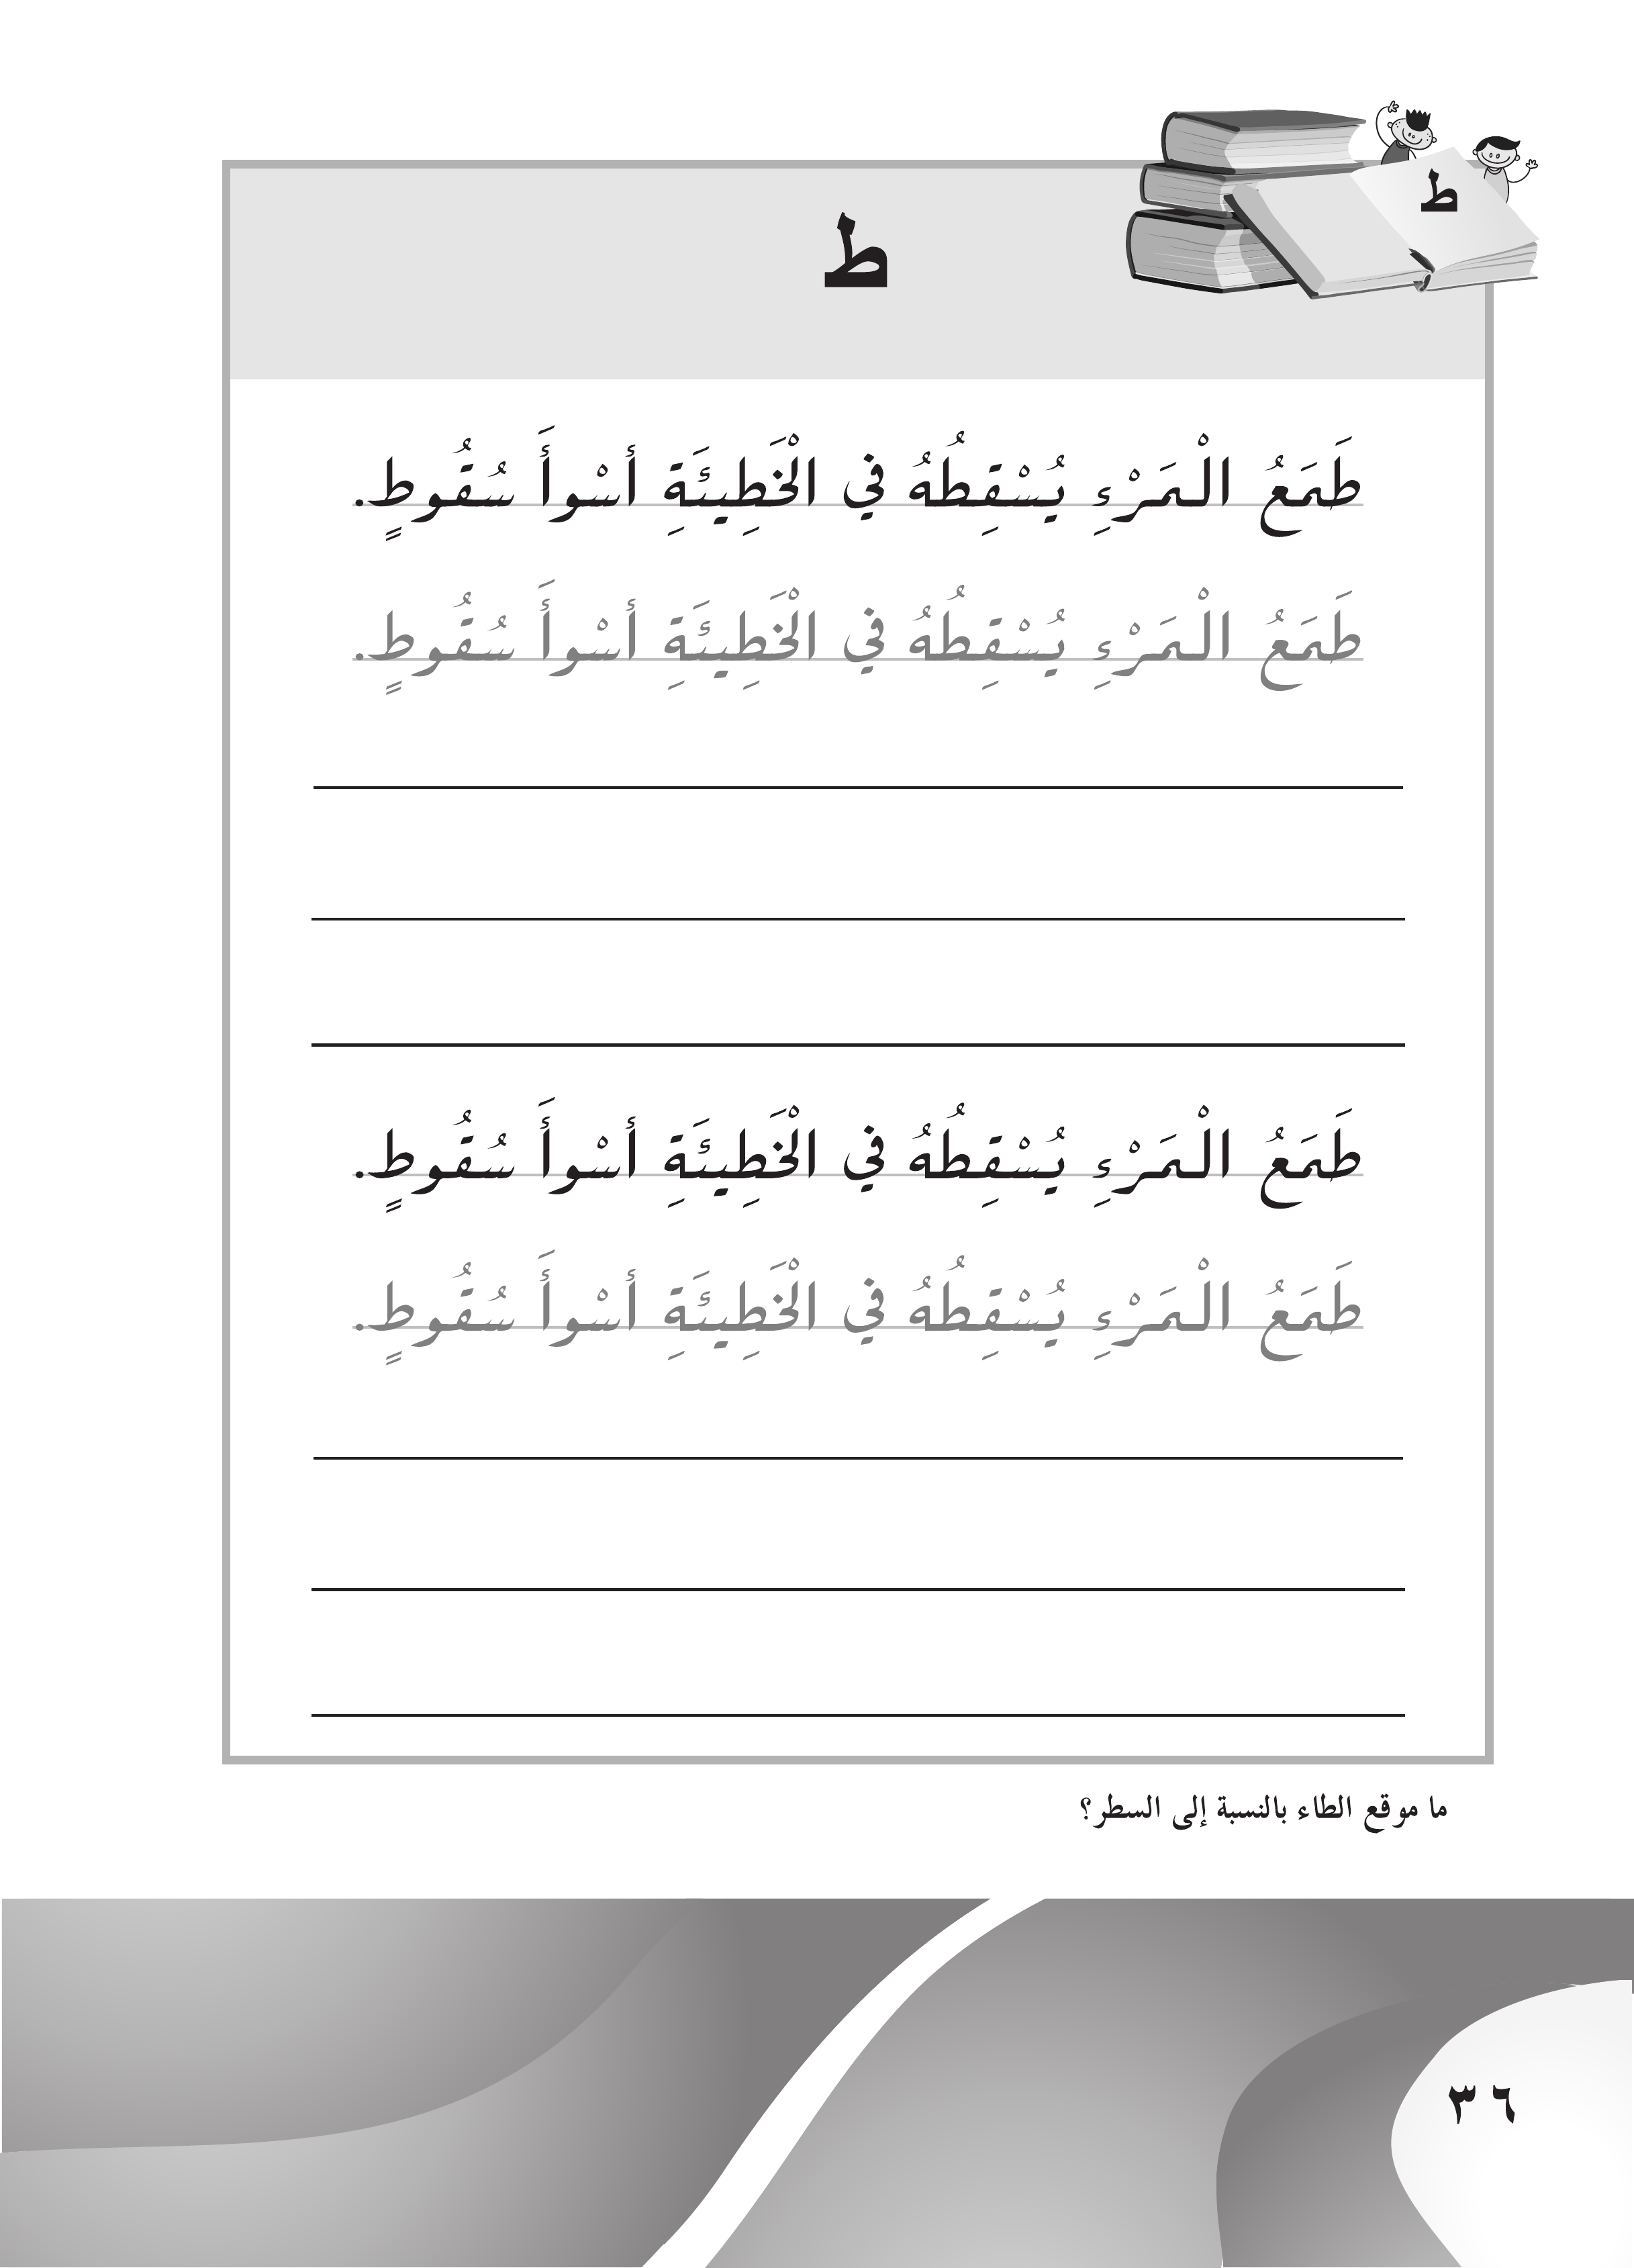 ط
ط
طَمَعُ الْمَرْءِ يُسْقِطُهُ فِي الْخَطِيئَةِ أسْوأَ سُقُوطٍ.
طَمَعُ الْمَرْءِ يُسْقِطُهُ فِي الْخَطِيئَةِ أسْوأَ سُقُوطٍ.
طَمَعُ الْمَرْءِ يُسْقِطُهُ فِي الْخَطِيئَةِ أسْوأَ سُقُوطٍ.
طَمَعُ الْمَرْءِ يُسْقِطُهُ فِي الْخَطِيئَةِ أسْوأَ سُقُوطٍ.
ما موقع الطاء بالنسبة إلى السطر؟
٣٦